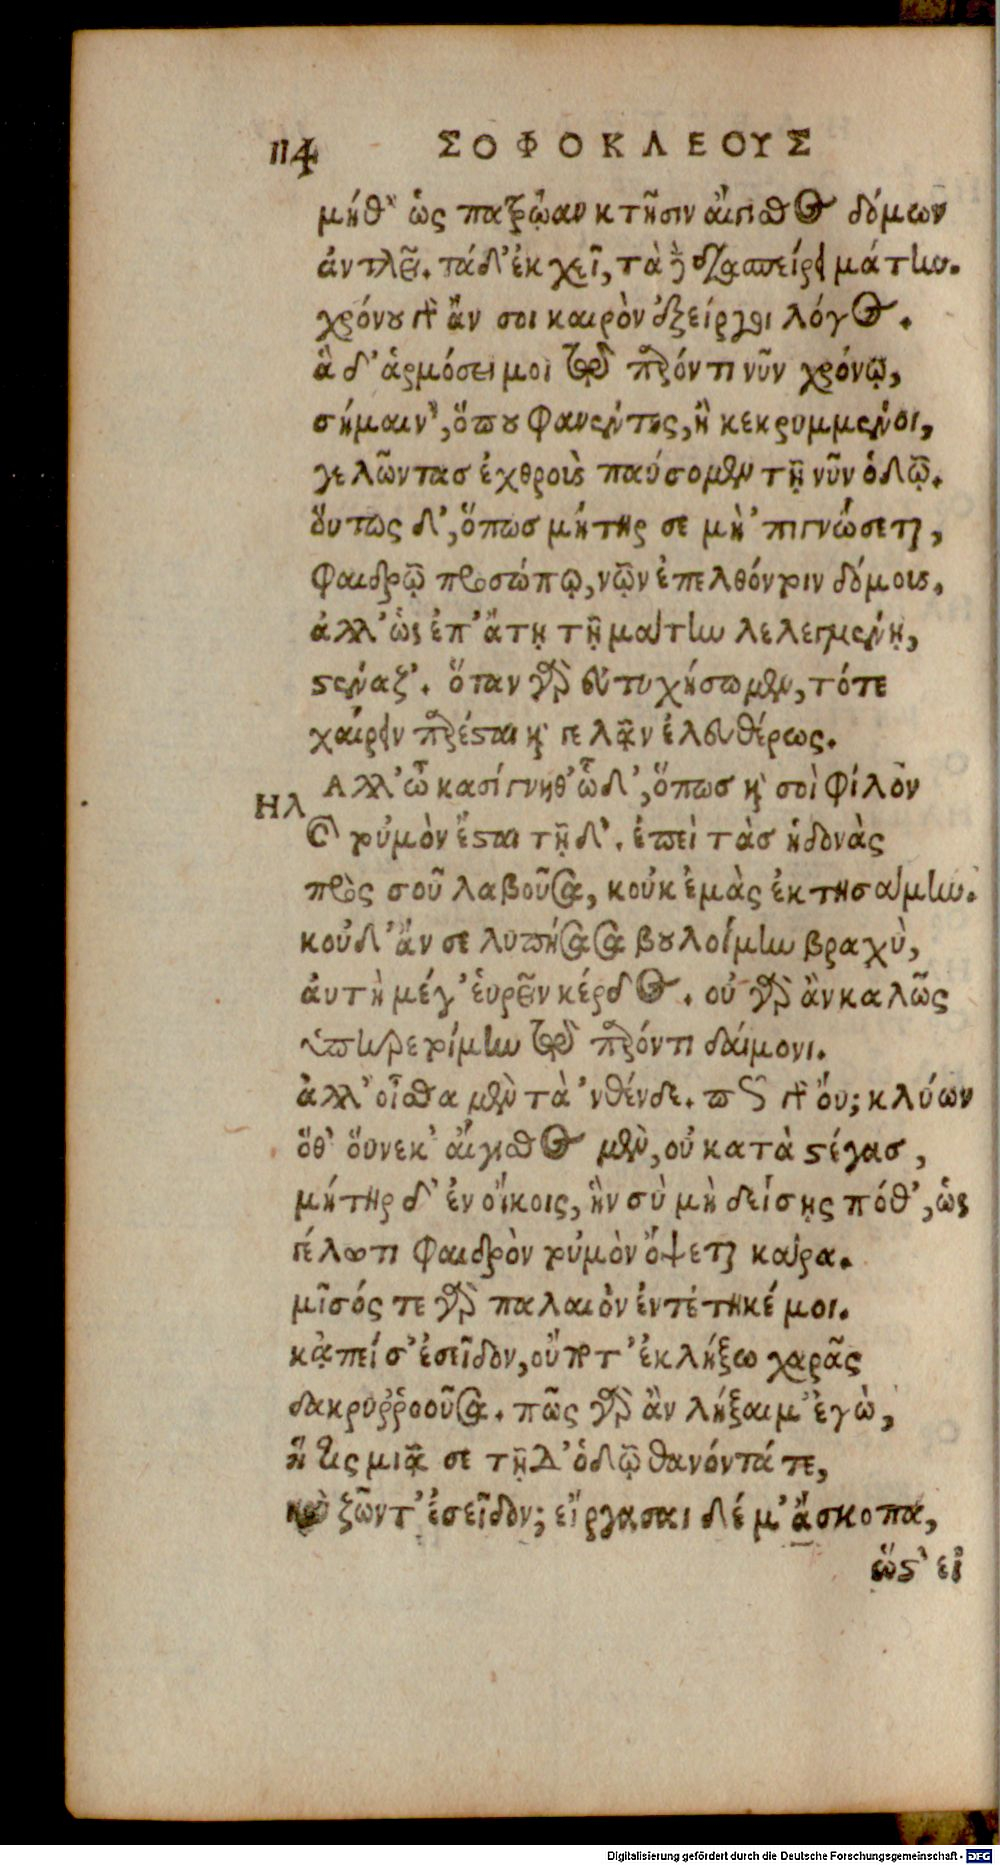 114 ΣΟΦΟΚΛΕΟΥΣ
μήθ' ὡς πατρῴαν κτῆσιν αἴγισθος δόμων
ἀντλεῖ. τάδ' ἐκχεῖ, τὰ δὲ διασπείρει μάτην.
χρόνου γὰρ ἄν σοι καιρὸν ἐξείργοι λόγος.
ἃ δ' ἁρμόσει μοι τῷ παρόντι νῦν χρόνῳ,
σήμαιν', ὅπου φανέντες, ἢ κεκρυμμένοι,
γελῶντασ ἐχθροὺς παύσομεν τῇ νῦν ὁδῷ.
ὅυτως δ', ὅπωσ μήτηρ σε μὴ 'πιγνώσεται,
φαιδρῷ προσώπῳ, νῷν ἐπελθόντοιν δόμους.
ἀλλ' ὡς ἐπ' ἄτῃ τῇ μάτην λελεγμένῃ,
στέναζ'. ὅταν γὰρ εὐτυχήσωμεν, τότε
χαίρειν παρέσται καὶ γελᾷν ἐλευθέρως.
Ηλ Αλλ' ὦ κασίγνηθ' ὧδ', ὅπωσ καὶ σοὶ φίλον
καὶ τοὐμὸν ἔσται τῇδ'. ἐπεὶ τὰσ ἡδονὰς
πρὸς σοῦ λαβοῦσα, κοὐκ ἐμὰς ἐκτησάμην.
κοὐδ' ἄν σε λυπήσασα βουλοίμην βραχὺ,
ἀυτὴ μέγ' ἑυρεῖν κέρδος. οὐ γὰρ ἂν καλῶς
ὑπηρετοίμην τῷ παρόντι δαίμονι.
ἀλλ' οἶσθα μὲν τὰ 'νθένδε. πῶς γὰρ ὄυ; κλύων
ὅθ' ὅυνεκ' αἴγισθος μὲν, οὐ κατὰ στέγασ,
μήτηρ δ' ἐν οἴκοις, ἣν σὺ μὴ δείσῃς πόθ', ὡς
γέλωτι φαιδρὸν τοὐμὸν ὄψεται κάρα.
μῖσός τε γὰρ παλαιὸν ἐντέτηκέ μοι.
κᾀπεί σ' ἐσεῖδον, οὔποτ' ἐκλήξω χαρᾶς
δακρυῤῥοοῦσα. πῶς γὰρ ἂν λήξαιμ' ἐγὼ,
ἥτις μιᾷ σε τῇδ' ὁδῷ θανόντά τε,
καὶ ζῶντ' ἐσεῖδον; εἴργασαι δέ μ' ἄσκοπα,
ὥστ' εἰ
Digitalisierung gefördert durch die Deutsche Forschungsgemeinschaft - DFG